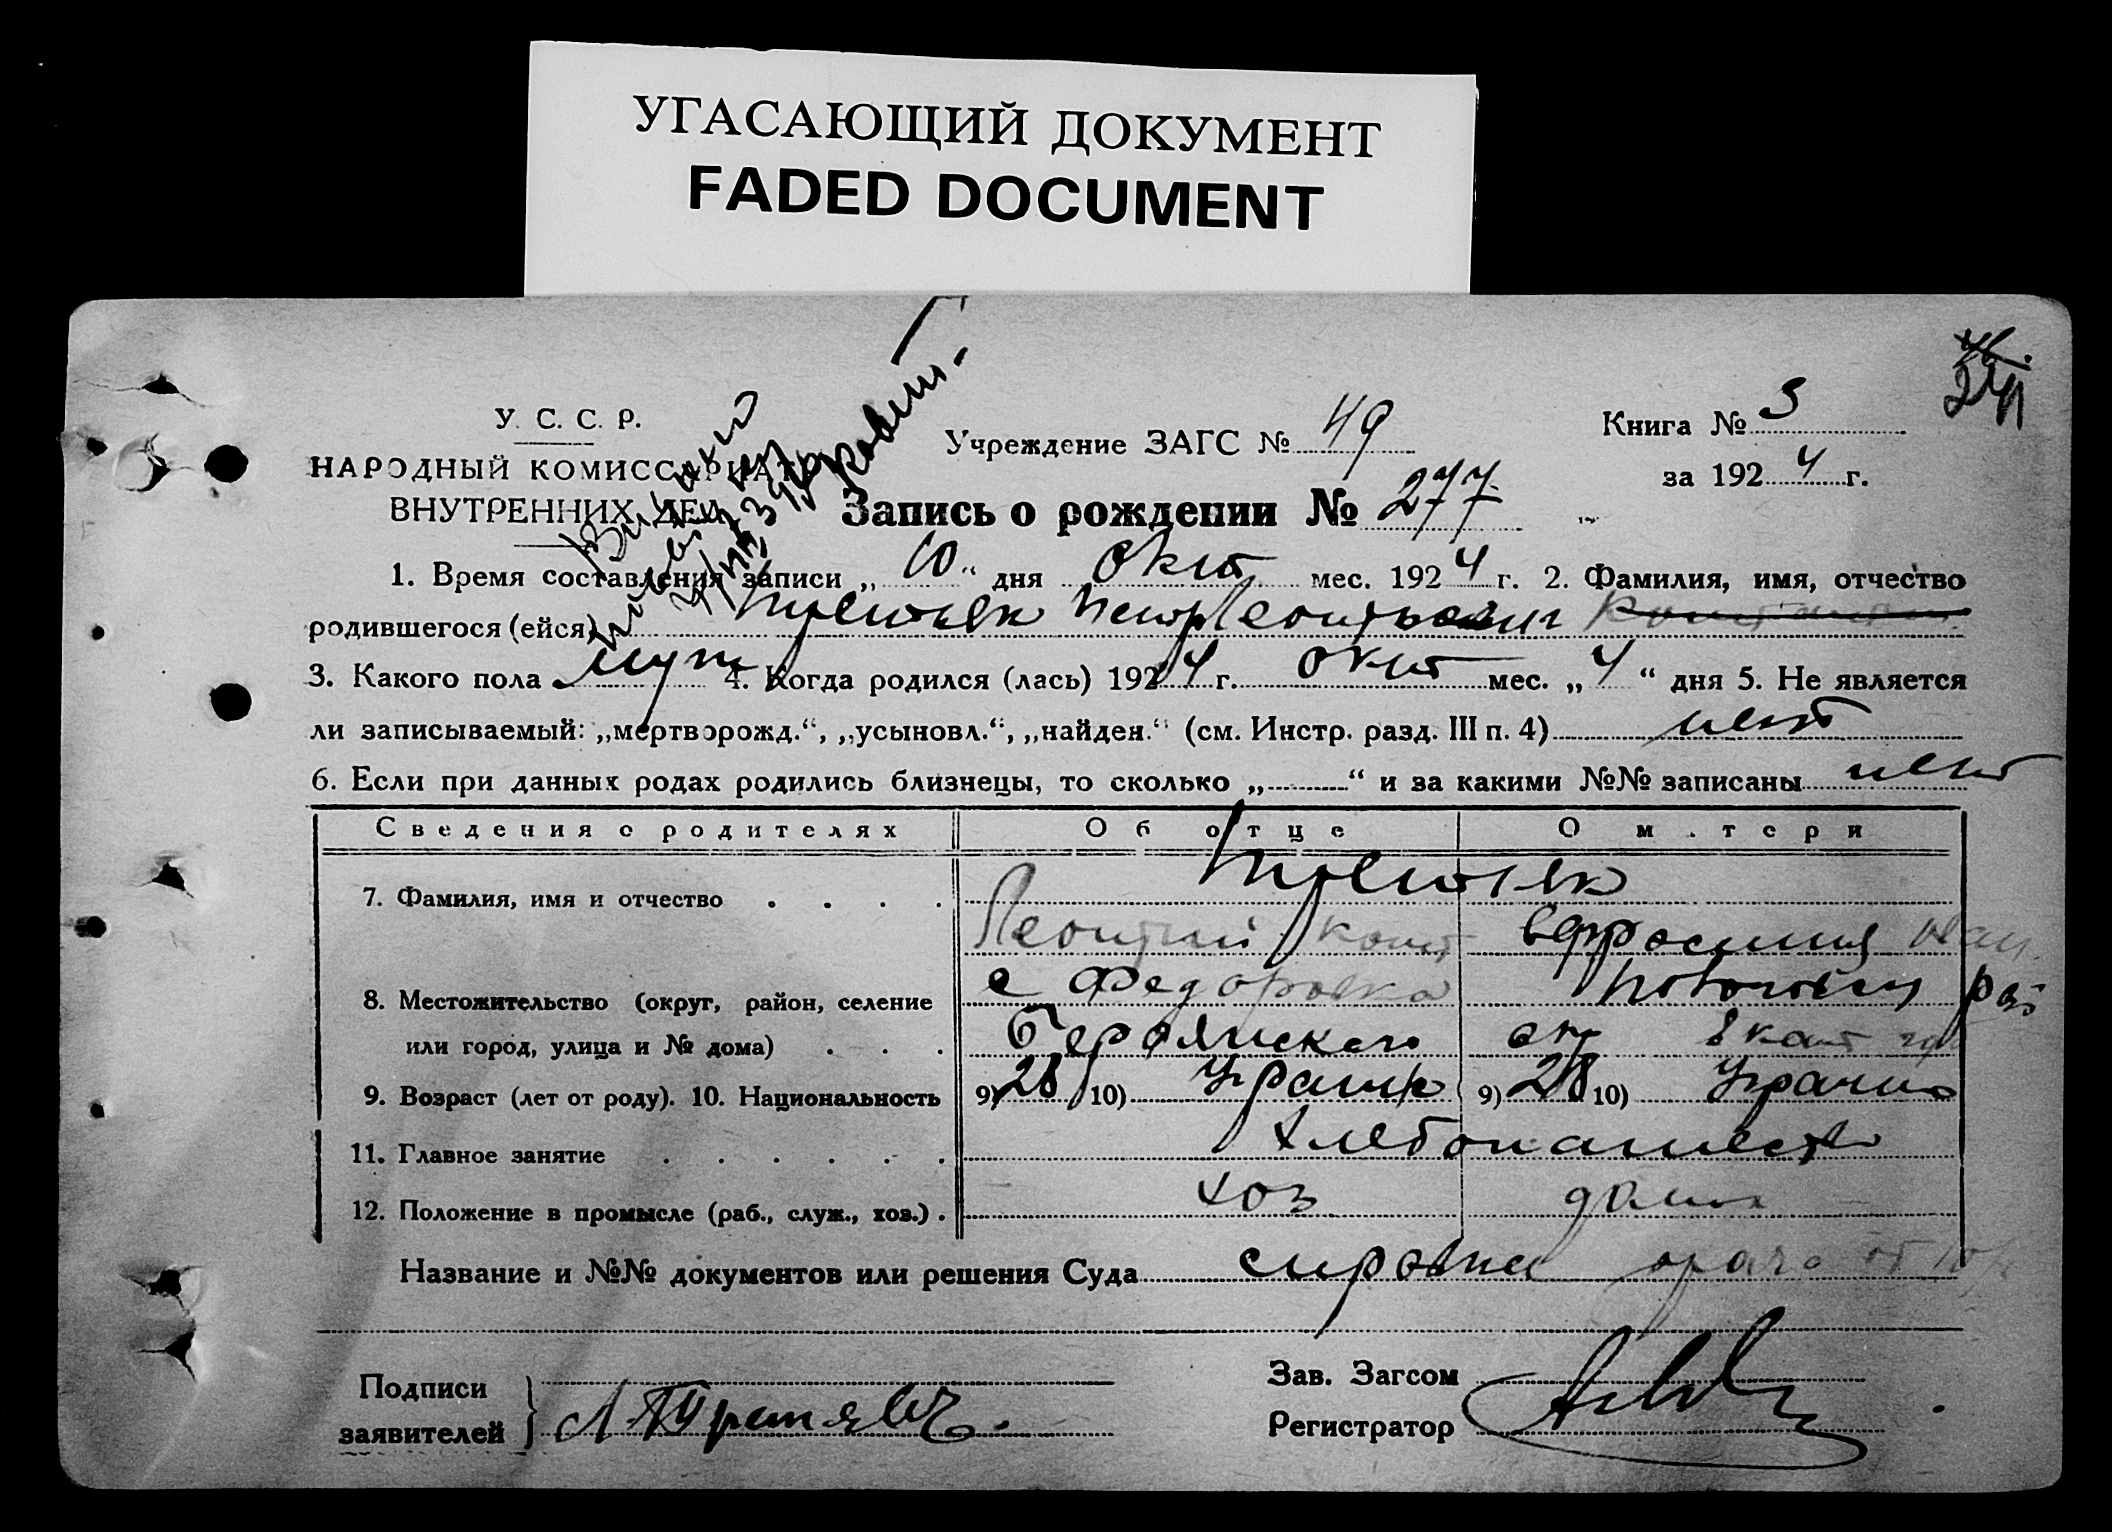 УГАСАЮЩИЙ ДОКУМЕНТ
FADED DOCUMENT
У. С. С. Р.
НАРОДНЫЙ КОМИССАРИАТ
ВНУТРЕННИХ ДЕЛ
Учреждение ЗАГС № 49
Книга № 3
за 1924 г.
Запись о рождении № 277
1. Время составления записи „10“ дня Окт мес. 1924 г. 2. Фамилия, имя, отчество
родившегося (ейся) Третьяк Петр Леонтьевич
3. Какого пола муж 4. Когда родился (лась) 1924 г. окт мес. „4“ дня 5. Не является
ли записываемый: „мертворожд.“, „усыновл.“, „найден.“ (см. Инстр. разд. III п. 4) нет
6. Если при данных родах родились близнецы, то сколько „ “ и за какими №№ записаны нет
Сведения о родителях Об отце О матери
7. Фамилия, имя и отчество Третьяк
Леонтий Конст Ефросиния
8. Местожительство (округ, район, селение с Федоровка рай
или город, улица и № дома) Бердянского окр Екат губ
9. Возраст (лет от роду). 10. Национальность 9) 28 10) Украин 9) 28 10) Украин
11. Главное занятие хлебопашест
12. Положение в промысле (раб., служ., хоз.) хоз дом
Название и №№ документов или решения Суда справка врача от
Подписи
заявителей Л Третяк
Зав. Загсом
Регистратор